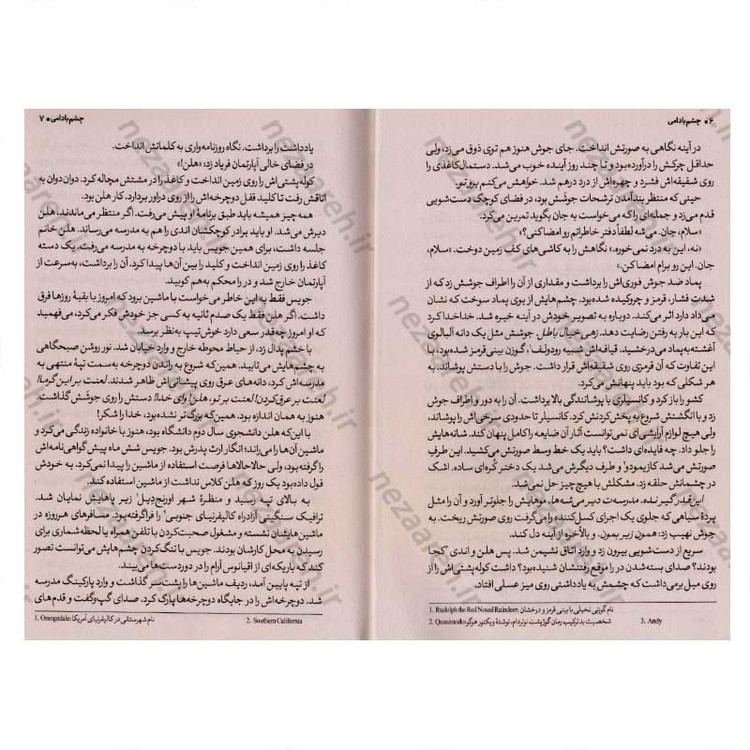 ۶ • چشم‌بادامی
در آینه نگاهی به صورتش انداخت. جای جوش هنوز هم توی ذوق می‌زد، ولی
حداقل چرکش را درآورده بود و تا چند روز آینده خوب می‌شد. دستمال‌کاغذی را
روی شقیقه‌اش فشرد و چهره‌اش از درد درهم شد. خواهش می‌کنم برو تو.
حینی که منتظر بندآمدن ترشحات جوشش بود، در فضای کوچک دست‌شویی
قدم می‌زد و جمله‌ای را که می‌خواست به جان بگوید تمرین می‌کرد.
«سلام، جان. می‌شه لطفاً دفتر خاطراتم رو امضا کنی؟»
«نه، این به درد نمی‌خوره.» نگاهش را به کاشی‌های کف زمین دوخت. «سلام،
جان. این رو برام امضا کن.»
پماد ضد جوش فوری‌اش را برداشت و مقداری از آن را اطراف جوش زد که از
شدت فشار، قرمز و چروکیده شده بود. چشم‌هایش از بوی پماد سوخت که نشان
می‌داد دارد اثر می‌کند. دوباره به تصویر خودش در آینه خیره شد. خداخدا کرد
که این بار به رفتن رضایت دهد. زهی خیال باطل. جوشش مثل یک دانه آلبالوی
آغشته‌به‌پماد می‌درخشید. قیافه‌اش شبیه رودولف¹، گوزن بینی‌قرمز شده بود، با
این تفاوت که آن قرمزی روی شقیقه‌اش قرار داشت. جوش را با دستش پوشاند. به
هر شکلی که بود باید پنهانش می‌کرد.
کشو را باز کرد و کانسیلری با پوشانندگی بالا برداشت. آن را به دور و اطراف جوش
زد و با انگشتش شروع به پخش‌کردنش کرد. کانسیلر تا حدودی سرخی‌اش را پوشاند،
ولی هیچ لوازم آرایشی‌ای نمی‌توانست آثار آن ضایعه را کامل پنهان کند. شانه‌هایش
را جلو داد. چه فایده‌ای داشت؟ باید یک خط وسط صورتش می‌کشید. این طرفِ
صورتش می‌شد کازیمودو² و طرف دیگرش می‌شد یک دختر کُره‌ای ساده. اشک
در چشمانش حلقه زد. مشکلش با هیچ‌چیز حل نمی‌شد.
این‌قدر گیر نده. مدرسه‌ت دیر می‌شه‌ها. موهایش را جلوتر آورد و آن را مثل
پردهٔ سیاهی که جلوی یک اجرای کسل‌کننده را می‌گرفت روی صورتش ریخت. به
جوش نهیب زد: همون زیر بمون. و بالأخره از آینه دل کند.
سریع از دست‌شویی بیرون زد و وارد اتاق نشیمن شد. پس هلن و اندی³ کجا
بودند؟ صدای بسته‌شدن در را موقع رفتنشان شنیده بود؟ داشت کوله‌پشتی‌اش را از
روی مبل برمی‌داشت که چشمش به یادداشتی روی میز عسلی افتاد.
1. Rudolph the Red Nosed Raindeer: نام گوزنی تخیلی با بینی قرمز و درخشان
2. Quasimodo: شخصیت بدترکیب رمان گوژپشت نوتردام، نوشتهٔ ویکتور هوگو
3. Andy
چشم‌بادامی • ۷
یادداشت را برداشت. نگاه روزنامه‌واری به کلماتش انداخت.
در فضای خالی آپارتمان فریاد زد: «هلن!»
کوله‌پشتی‌اش را روی زمین انداخت و کاغذ را در مشتش مچاله کرد. دوان‌دوان به
اتاقش رفت تا کلید قفل دوچرخه‌اش را از روی دراور بردارد. کار هلن بود.
همه‌چیز همیشه باید طبق برنامهٔ او پیش می‌رفت. اگر منتظر می‌ماندند، هلن
دیرش می‌شد. او باید برادر کوچکشان اندی را هم به مدرسه می‌رساند. هلن خانم
جلسه داشت، برای همین جویس باید با دوچرخه به مدرسه می‌رفت. یک دسته
کاغذ را روی زمین انداخت و کلید را بین آن‌ها پیدا کرد. آن را برداشت، به‌سرعت از
آپارتمان خارج شد و در را محکم به‌هم کوبید.
جویس فقط به این خاطر می‌خواست با ماشین برود که امروز با بقیهٔ روزها فرق
داشت. اگر هلن فقط یک صدم ثانیه به کسی جز خودش فکر می‌کرد، می‌فهمید
که او امروز چه‌قدر سعی دارد خوش‌تیپ به‌نظر برسد.
با خشم پدال زد، از حیاط محوطه خارج و وارد خیابان شد. نور روشن صبحگاهی
به چشم‌هایش می‌تابید. همین‌که شروع به راندن دوچرخه به‌سمت تپهٔ منتهی به
مدرسه‌اش کرد، دانه‌های عرق روی پیشانی‌اش ظاهر شدند. لعنت بر این گرما!
لعنت بر عرق‌کردن! لعنت بر تو، هلن! وای خدا! دستش را روی جوشش گذاشت.
هنوز به همان اندازه بود. همین‌که بزرگ‌تر نشده بود، خدا را شکر!
با این‌که هلن دانشجوی سال دوم دانشگاه بود، هنوز با خانواده زندگی می‌کرد و
ماشین آن‌ها را می‌راند؛ انگار ارث پدرش بود. جویس شش ماه پیش گواهی‌نامه‌اش
را گرفته بود، ولی حالاحالاها فرصت استفاده از ماشین را پیدا نمی‌کرد. به خودش
قول داده بود یک روز که هلن کلاس نداشت از ماشین استفاده کند.
به بالای تپه رسید و منظرهٔ شهر اورنج‌دِیل¹ زیر پاهایش نمایان شد.
ترافیک سنگینی آزادراه کالیفرنیای جنوبی² را فراگرفته بود. مسافرهای هرروزه در
ماشین‌هایشان نشسته و مشغول صحبت‌کردن با تلفن همراه یا لحظه‌شماری برای
رسیدن به محل کارشان بودند. جویس با تنگ‌کردن چشم‌هایش می‌توانست تصور
کند که باریکه‌ای از اقیانوس آرام را در دوردست‌ها می‌بیند.
از تپه پایین آمد، ردیف ماشین‌ها را پشت‌سر گذاشت و وارد پارکینگ مدرسه
شد. دوچرخه‌اش را در جایگاه دوچرخه‌ها پارک کرد. صدای گپ‌وگفت و قدم‌های
1. Orangedale: نام شهرستانی در کالیفرنیای آمریکا
2. Southern California
nezaareh.ir